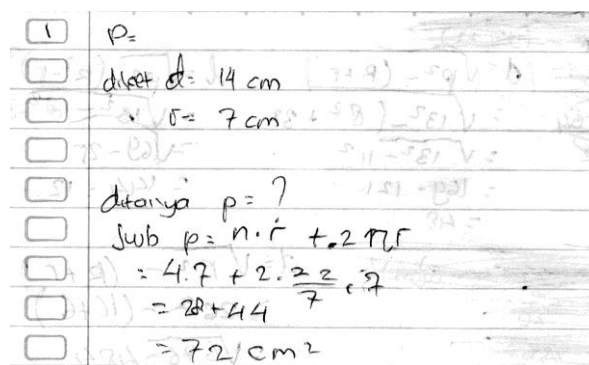 1 P=
diket d= 14 cm
r= 7 cm
ditanya p= ?
Jwb p= n.r + .2πr
= 4.7 + 2. 22/7 . 7
= 28+44
= 72 cm²